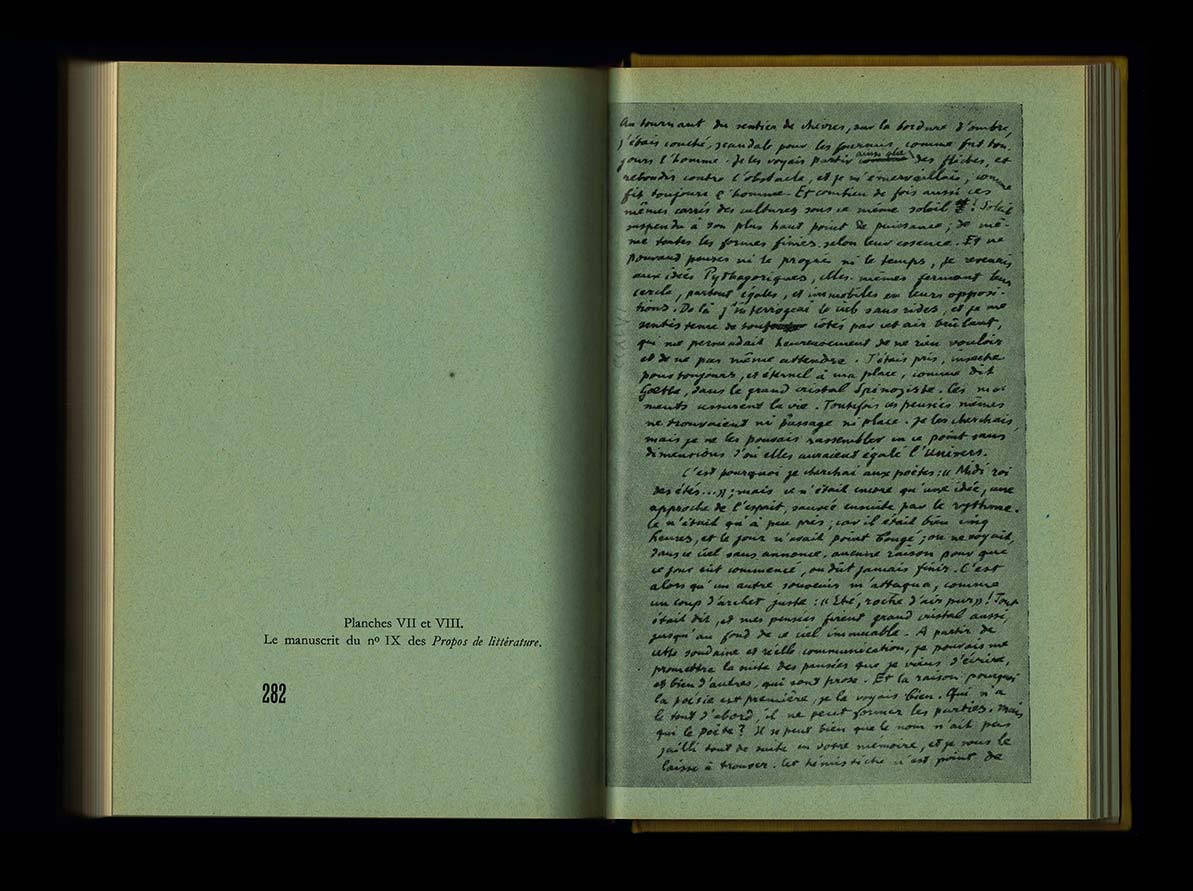 Planches VII et VIII.
Le manuscrit du nº IX des Propos de littérature.
282
Au tournant du sentier de chèvres, sur la bordure d'ombre,
j'étais couché, scandale pour les fourmis, comme fut tou-
jours l'homme. Je les voyais partir ainsi que des flèches, et
rebondir contre l'obstacle, et je m'émerveillais, comme
fit toujours l'homme. Et combien de fois aussi ces
mêmes carrés des cultures sous ce même soleil ! Soleil
suspendu à son plus haut point de puissance ; de mê-
me toutes les formes finies selon leur essence. Et ne
pouvant penser ni le progrès ni le temps, je revenais
aux idées Pythagoriques, elles-mêmes fermant leur
cercle, partout égales, et immobiles en leurs opposi-
tions. De là j'interrogeai le ciel sans rides, et je me
sentis tenu de tous côtés par cet air brûlant,
qui me persuadait heureusement de ne rien vouloir
et de ne pas même attendre. J'étais pris, insecte
pour toujours, et éternel à ma place, comme dit
Goethe, dans le grand cristal Spinoziste. Ces mo-
ments assurent la vie. Toutefois ces pensées mêmes
ne trouvaient ni passage ni place. Je les cherchais,
mais je ne les pouvais rassembler en ce point sans
dimensions d'où elles auraient égalé l'Univers.
C'est pourquoi je cherchai aux poètes : « Midi roi
des étés... » ; mais ce n'était encore qu'une idée, une
approche de l'esprit, sauvée ensuite par le rythme.
Ce n'était qu'à peu près ; car il était bien cinq
heures, et le jour n'avait point bougé ; on ne voyait,
dans ce ciel sans annonce, aucune raison pour que
ce jour eût commencé, ou dût jamais finir. C'est
alors qu'un autre souvenir m'attaqua, comme
un coup d'archet juste : « Eté, roche d'air pur » ! Tout
était dit, et mes pensées firent grand cristal aussi,
jusqu'au fond de ce ciel immuable. A partir de
cette soudaine et réelle communication, je pouvais me
promettre la suite des pensées que je viens d'écrire,
et bien d'autres, qui sont prose. Et la raison pourquoi
la poésie est première, je la voyais bien. Qui n'a
le tout d'abord, il ne peut former les parties. Mais
qui le poète ? Il se peut bien que le nom n'ait pas
jailli tout de suite en votre mémoire, et je vous le
laisse à trouver. Cet hémistiche n'est point de